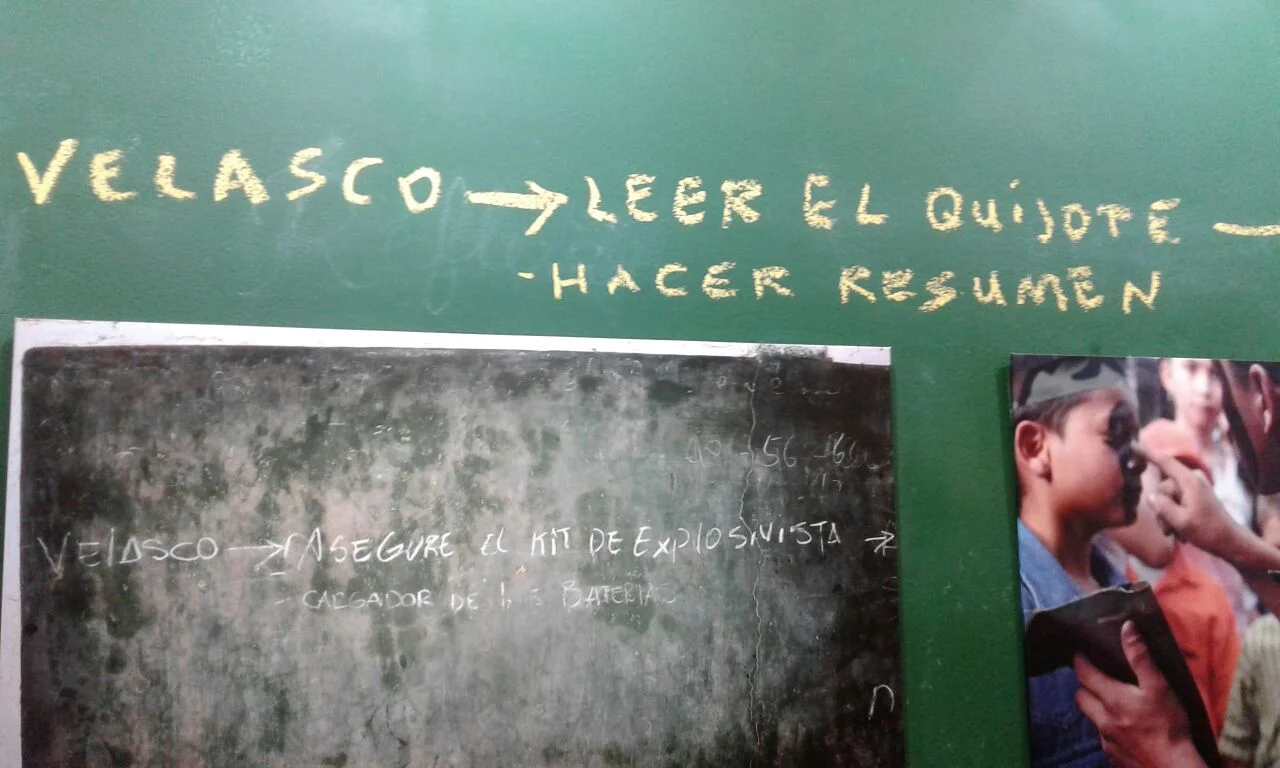 VELASCO → LEER EL QUIJOTE —
- HACER RESUMEN
56
VELASCO → ASEGURE EL KIT DE EXPLOSIVISTA →
- CARGADOR DE BATERIAS
n